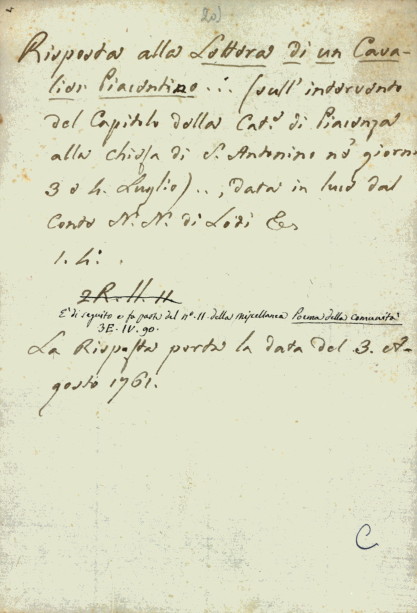 20)
Risposta alla Lettera di un Cava-
lier Piacentino ... (sull' intervento
del Capitolo della Cat.e di Piacenza
alla chiesa di S. Antonino ne' giorni
3 e 4. Luglio) .., data in luce dal
Conte N. N. di Lodi &c
1. 4.° .
E' di seguito e fa parte del n.° 11 della miscellanea Poema della Comunità
3E. IV. 90.
La Risposta porta la data del 3. A-
gosto 1761.
C